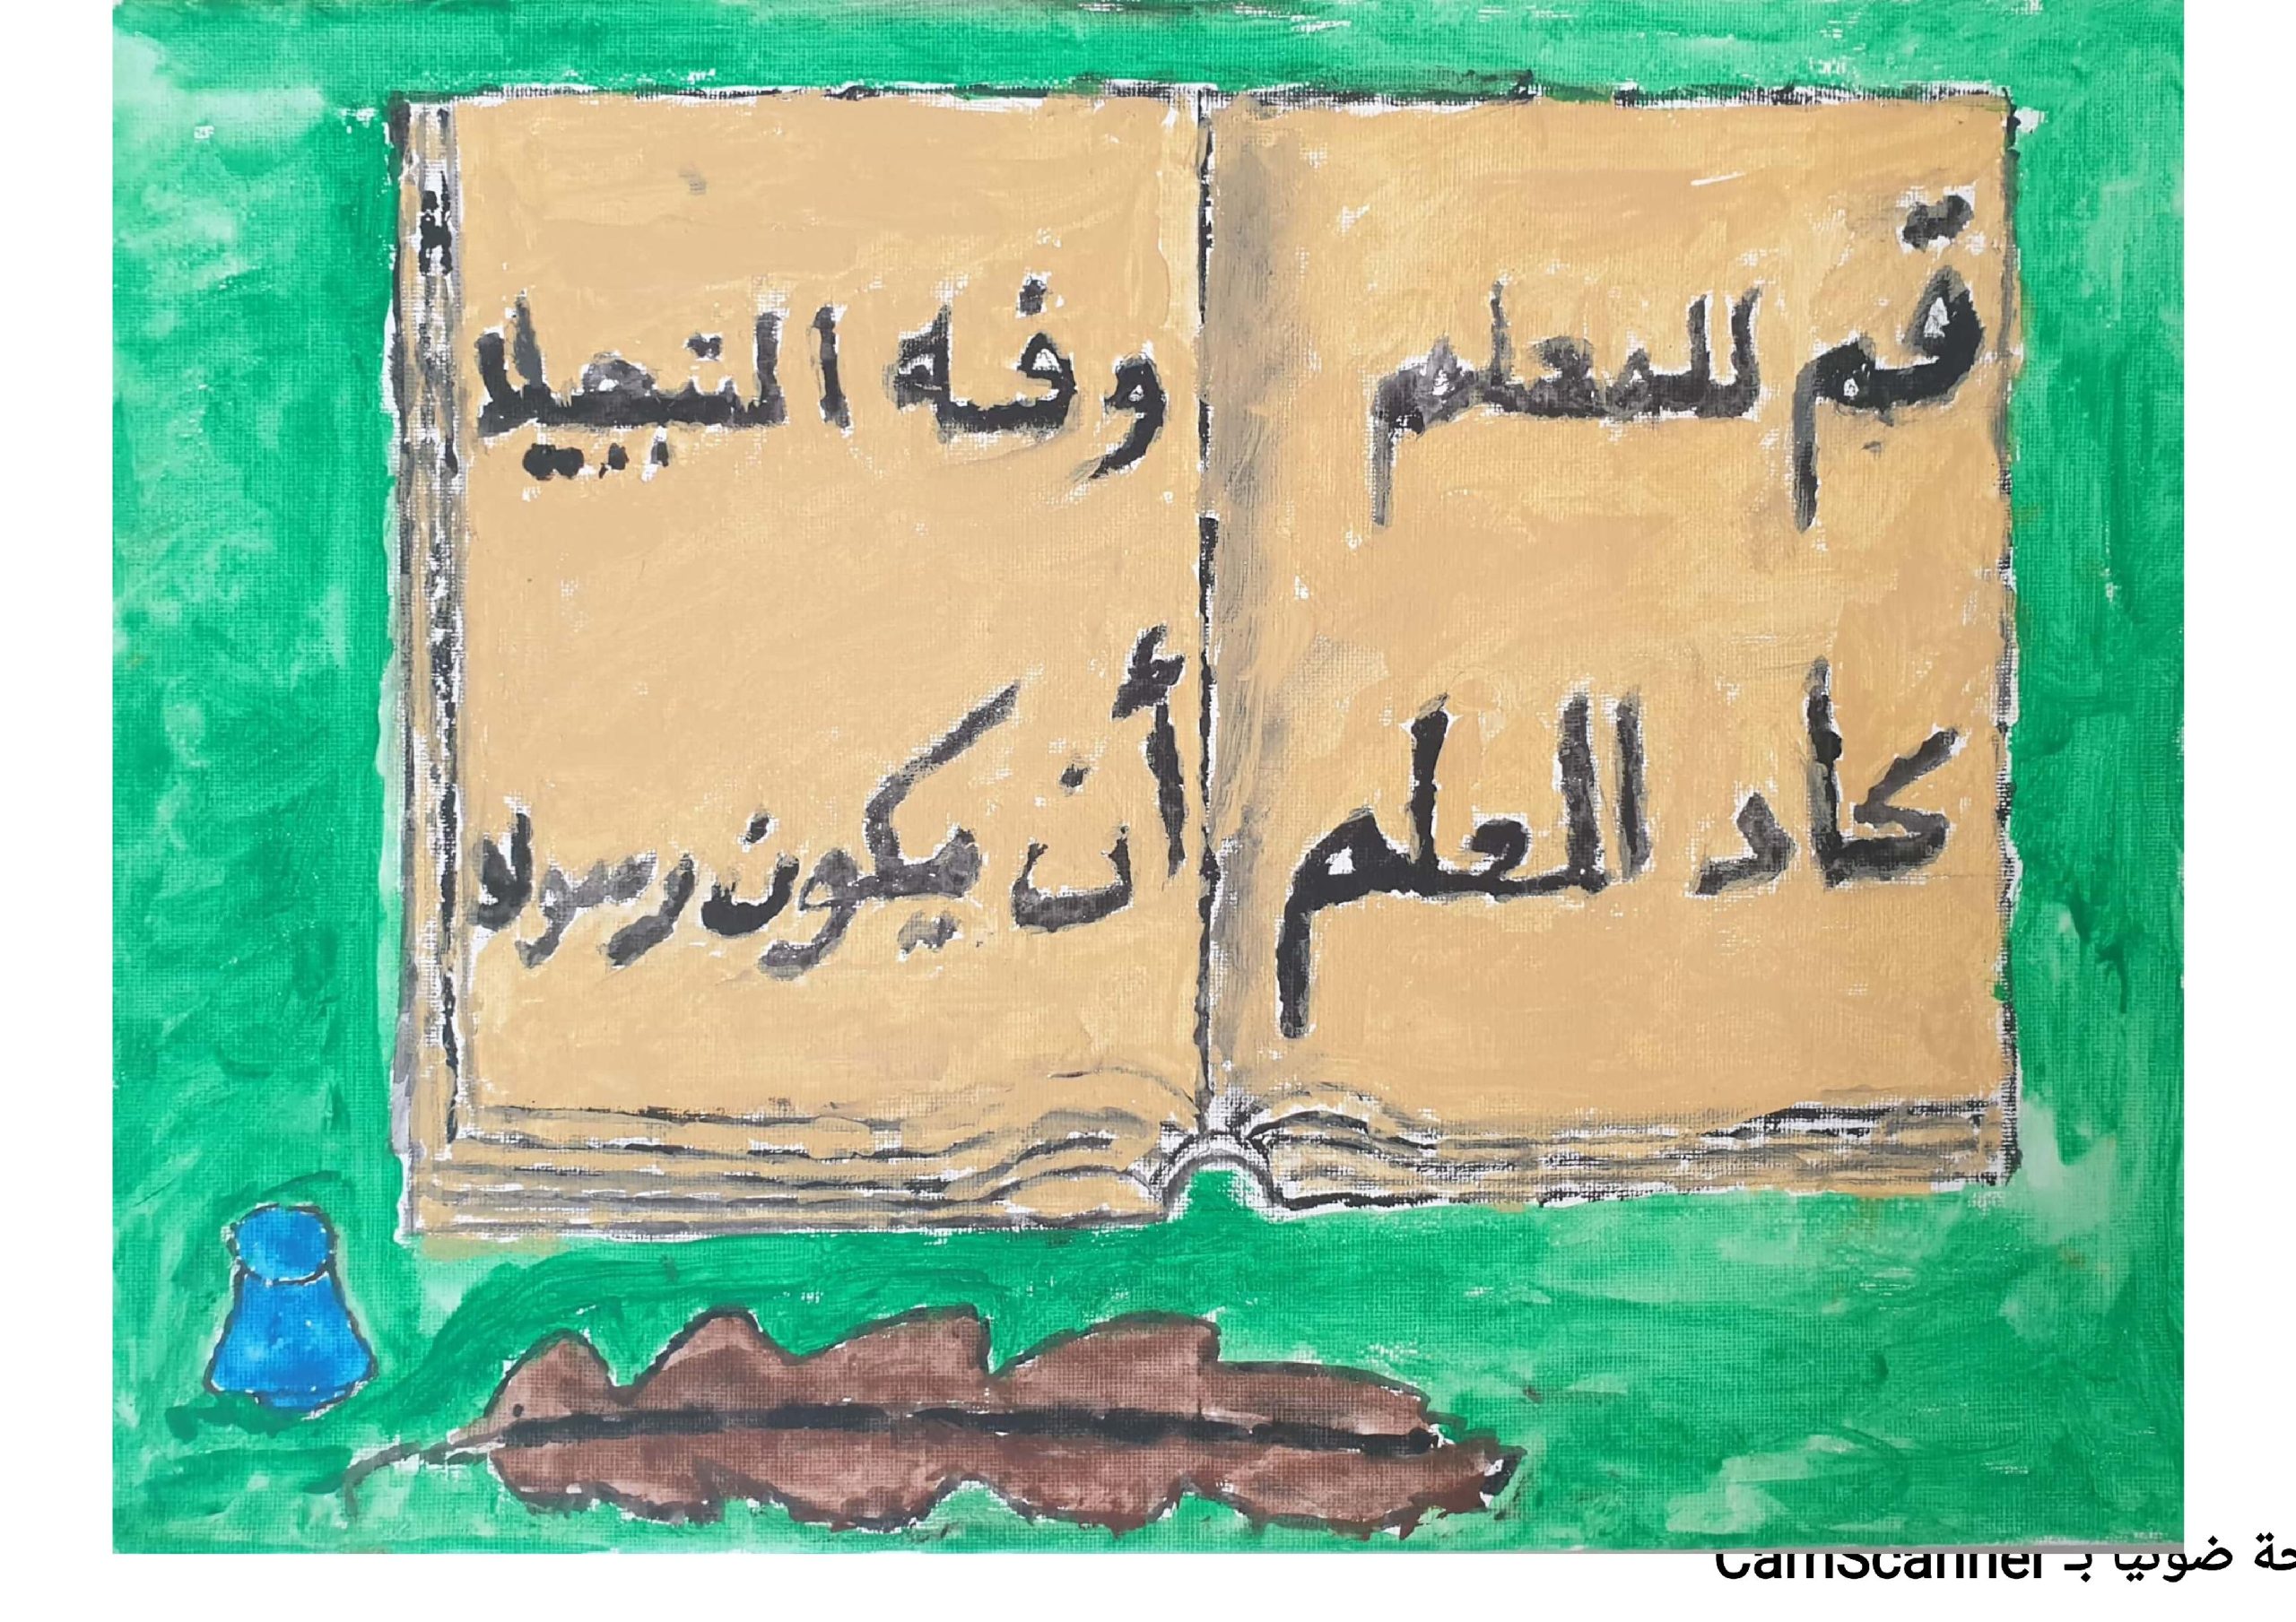 قم للمعلم وفه التبجيلا
كاد العلم أن يكون رسولا
ضوئيا بـ CamScanner